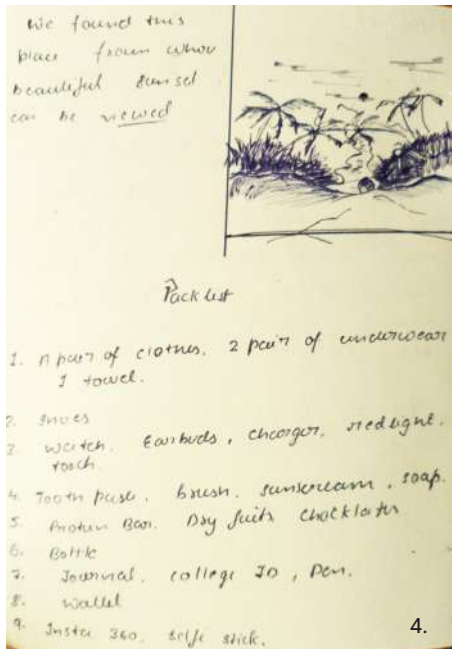 We found this
place from wher
beautiful sunset
can be viewed
Pack list
1. n pair of clothes. 2 pair of underwear
1 towel.
2. Shoes
3. Watch. Earbuds, charger. redlight.
torch.
4. Tooth paste. brush. sunscream, soap.
5. Protein Bar. Dry fuits chocklates
6. Bottle
7. Journal. college ID, Pen.
8. Wallet
9. Insta 360. selfie stick.
4.